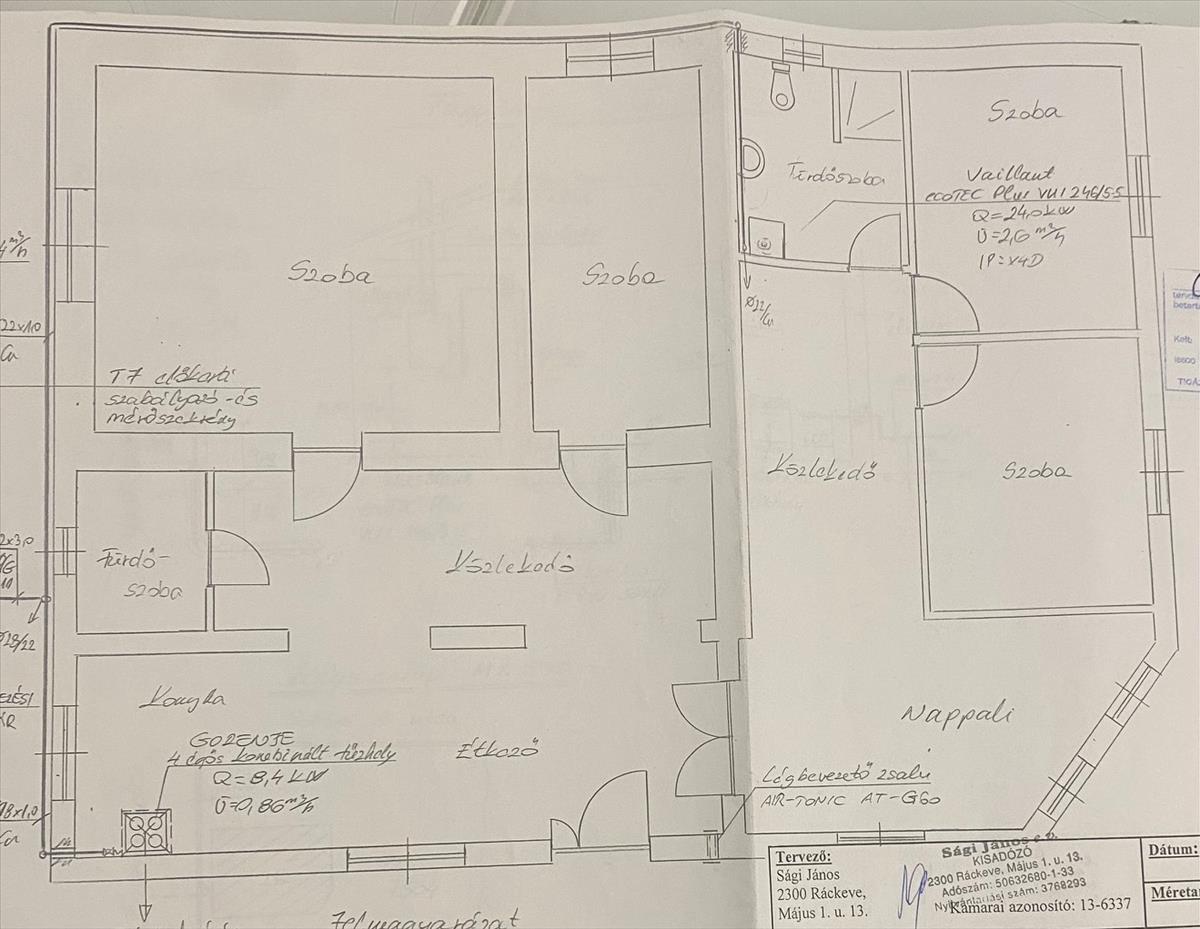 Szoba
Szoba
Szoba
Fürdőszoba
Vaillant
ecoTEC Plus VUI 246/5-5
Q=24,0 kW
V=2,6 m³/h
IP=X4D
m³/h
22x1,0
Cu
T7 előkerti
szabályozó-és
mérőszekrény
Ø22/Cu
Közlekedő
Szoba
Fürdő-
szoba
Közlekedő
Ø28/22
Konyha
GORENJE
4 égős kombinált tűzhely
Q=8,4 kW
V=0,86 m³/h
Étkező
Nappali
Légbevezető zsalu
AIR-TONIC AT-G60
18x1,0
Cu
Jelmagyarázat
Tervező:
Sági János
2300 Ráckeve,
Május 1. u. 13.
Sági János e.v.
KISADÓZÓ
2300 Ráckeve, Május 1. u. 13.
Adószám: 50632680-1-33
Nyilvántartási szám: 3768293
Kamarai azonosító: 13-6337
Dátum:
Méreta
Kelt:
TIGÁ